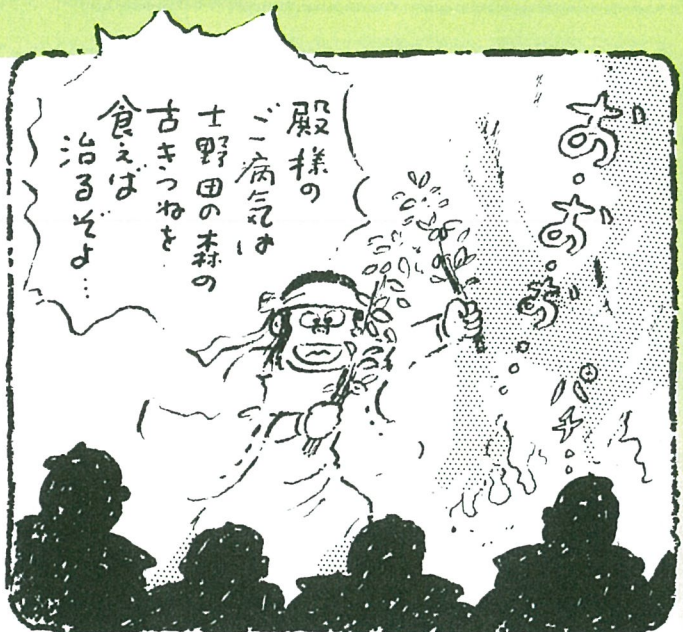 お・お・お・・・
パチ・・
殿様の
ご病気は
士野田の森の
古きつねを
食えば
治るぞよ…